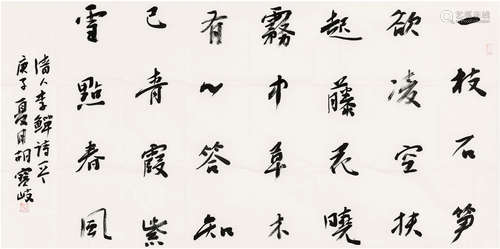 一枝石笋
欲凌空扶
起藤花曉
霧中草木
有心答知
已青霞紫
雪點春風
清人李鱓诗一首
庚子夏月胡寶岐